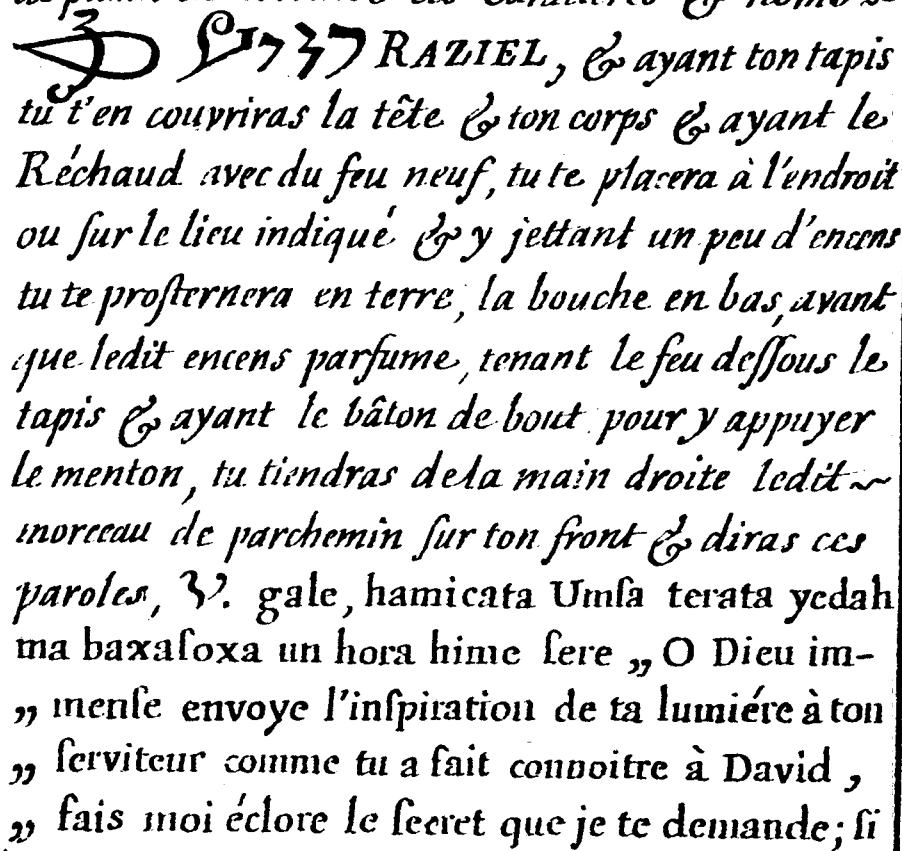 RAZIEL, & ayant ton tapis
tu t'en couvriras la tête & ton corps & ayant le
Réchaud avec du feu neuf, tu te placera à l'endroit
ou ſur le lieu indiqué & y jettant un peu d'encens
tu te proſternera en terre, la bouche en bas, avant
que ledit encens parfume, tenant le feu deſſous le
tapis & ayant le bâton de bout pour y appuyer
le menton, tu tiendras dela main droite ledit ~
morceau de parchemin ſur ton front & diras ces
paroles, gale, hamicata Umſa terata yedah
ma baxaſoxa un hora hime ſere „ O Dieu im-
„ menſe envoye l'inſpiration de ta lumiére à ton
„ ſerviteur comme tu a fait connoitre à David ,
„ fais moi éclore le ſecret que je te demande; ſi